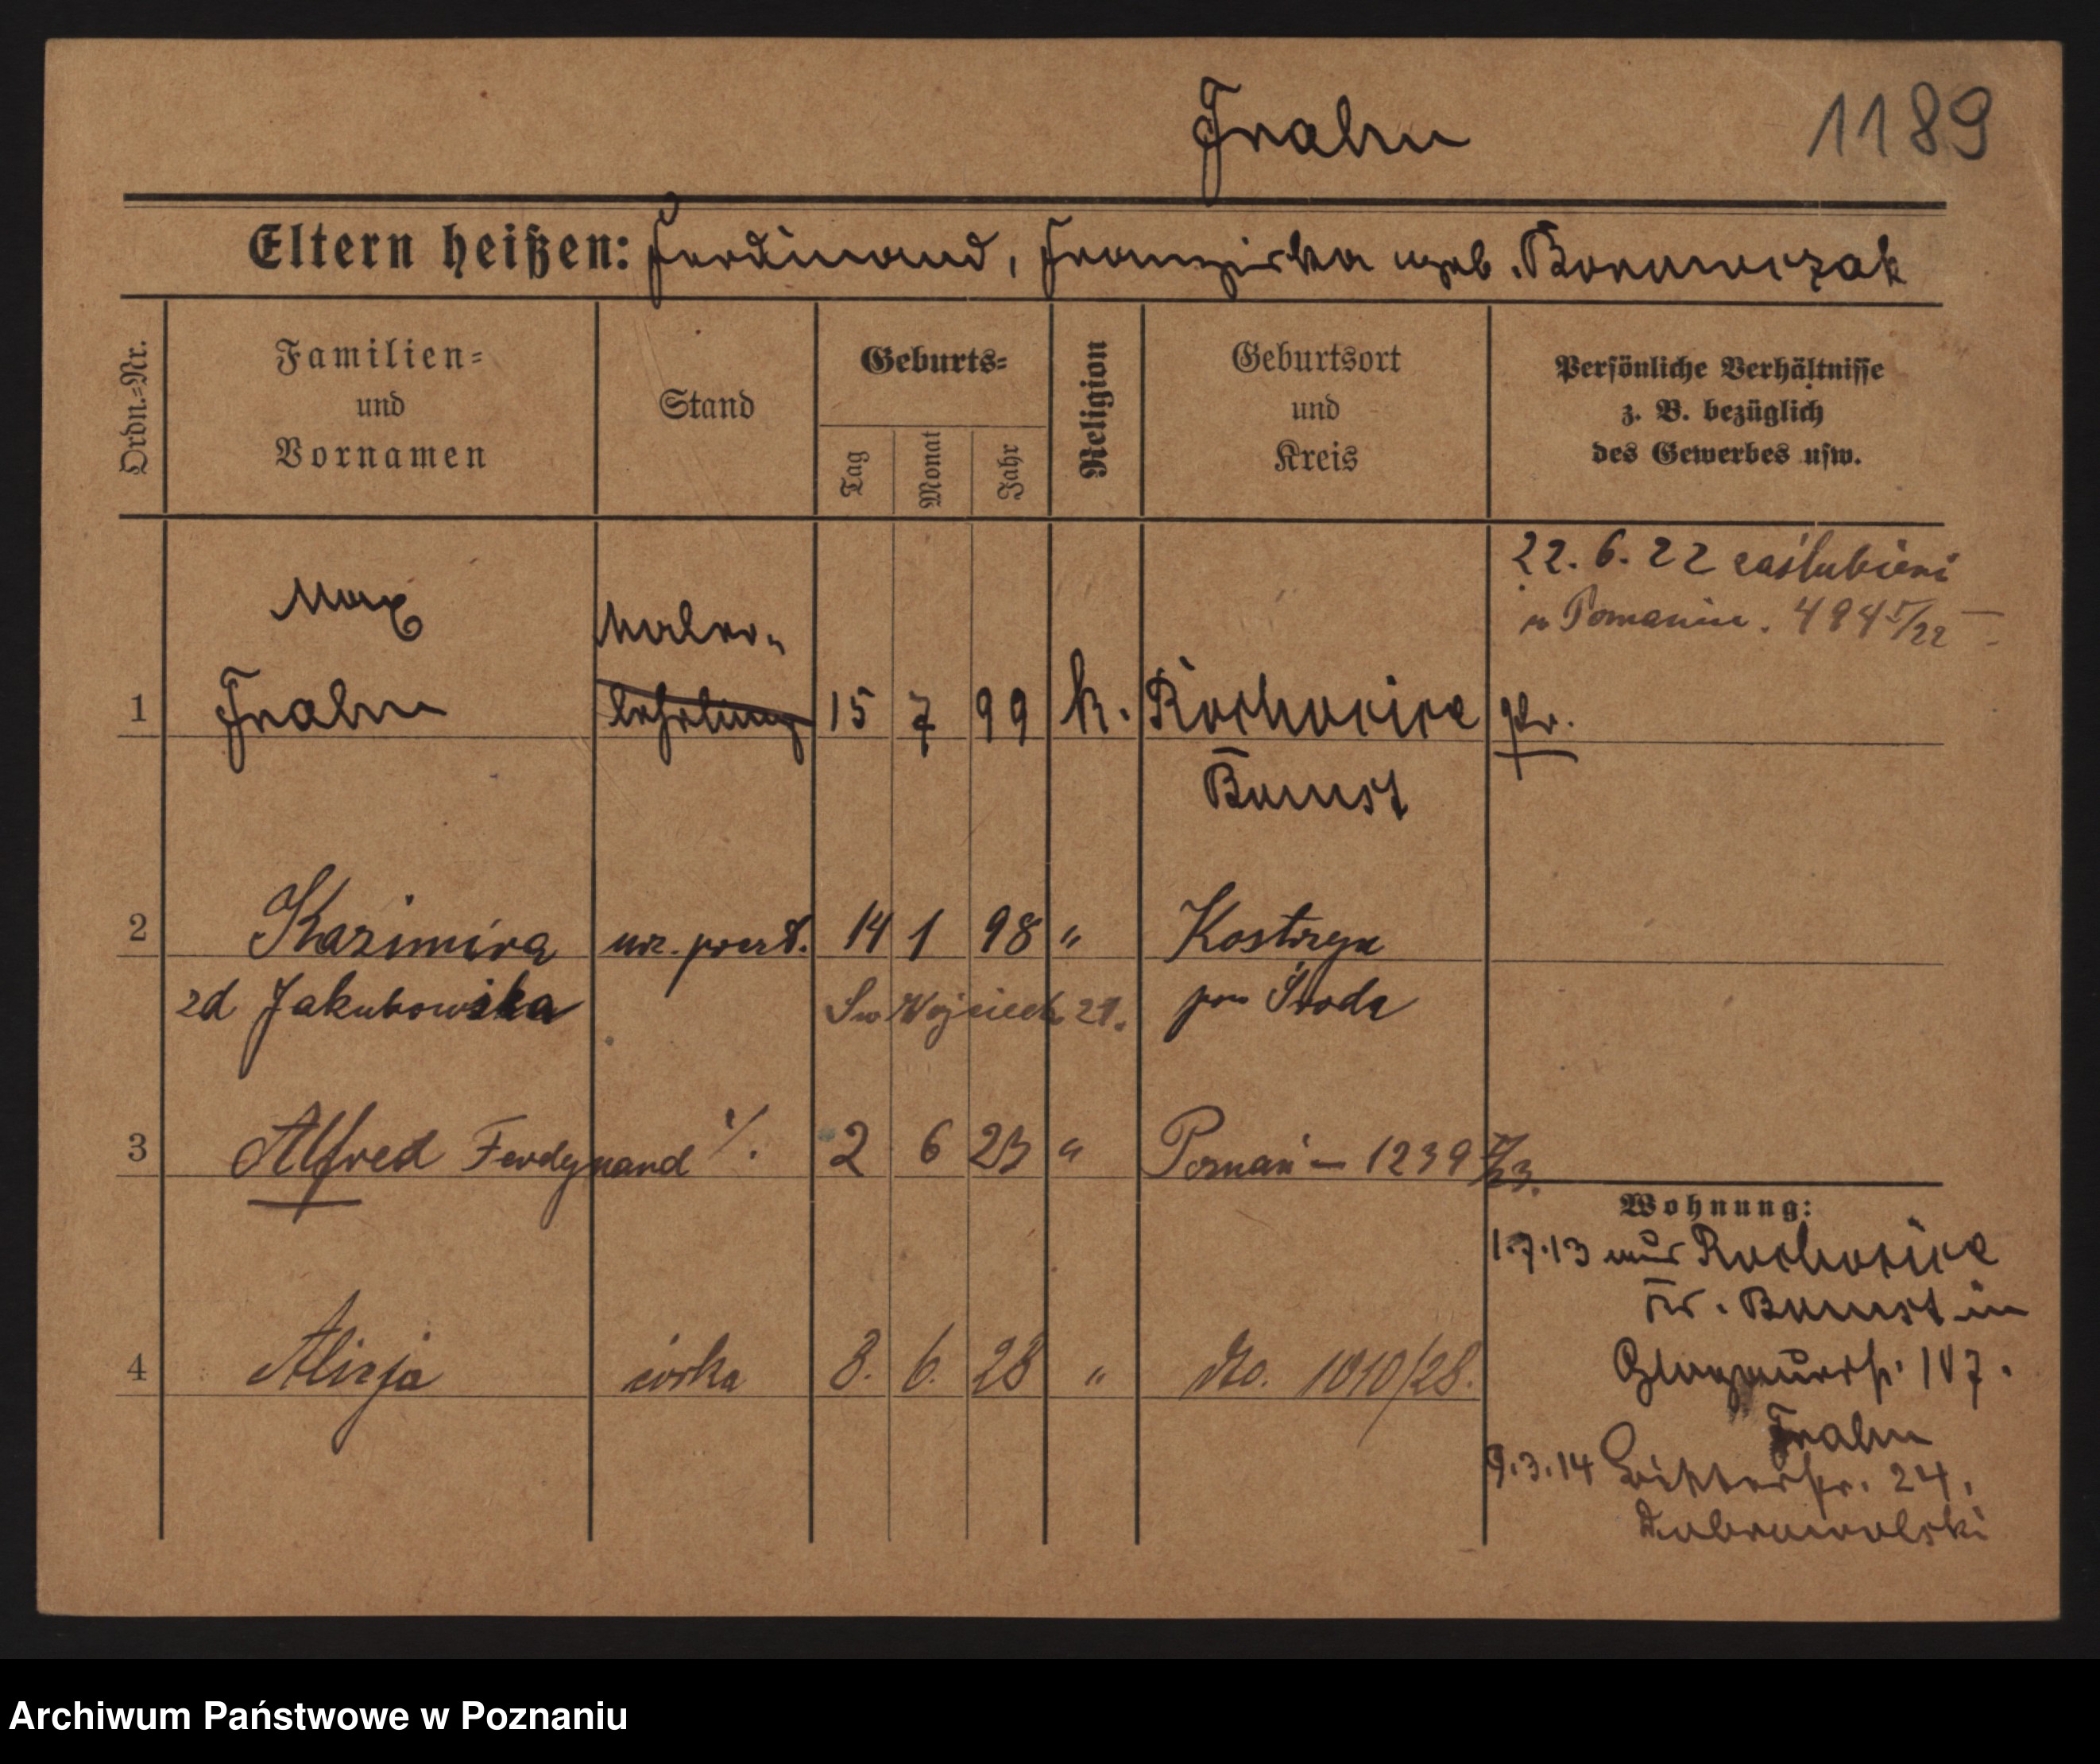 Frahm
1189
Eltern heißen: Ferdinand, Franziska geb.
Ordn.=Nr.
Familien=
und
Vornamen
Stand
Geburts=
Tag
Monat
Jahr
Religion
Geburtsort
und
Kreis
Persönliche Verhältnisse
z. B. bezüglich
des Gewerbes usw.
22. 6. 22 zaślubieni
w Poznaniu.
Max
Maler-
1 Frahm lehrling 15 7 99 k.
Bomst
2 Kazimira urz. poczt. 14 1 98 " Kostrzyn
zd Jakubowska Św Wojciech pow Środa
3 Alfred Ferdynand ·/. 2 6 23 " Poznań — 1239
4 Alicja córka 8. 6. 28 " No. 1010/28.
Wohnung:
1.7.13 aus
Kr. Bomst in
Glogauerstr.
Frahm
9.3.14 24.
Dobrowolski
Archiwum Państwowe w Poznaniu